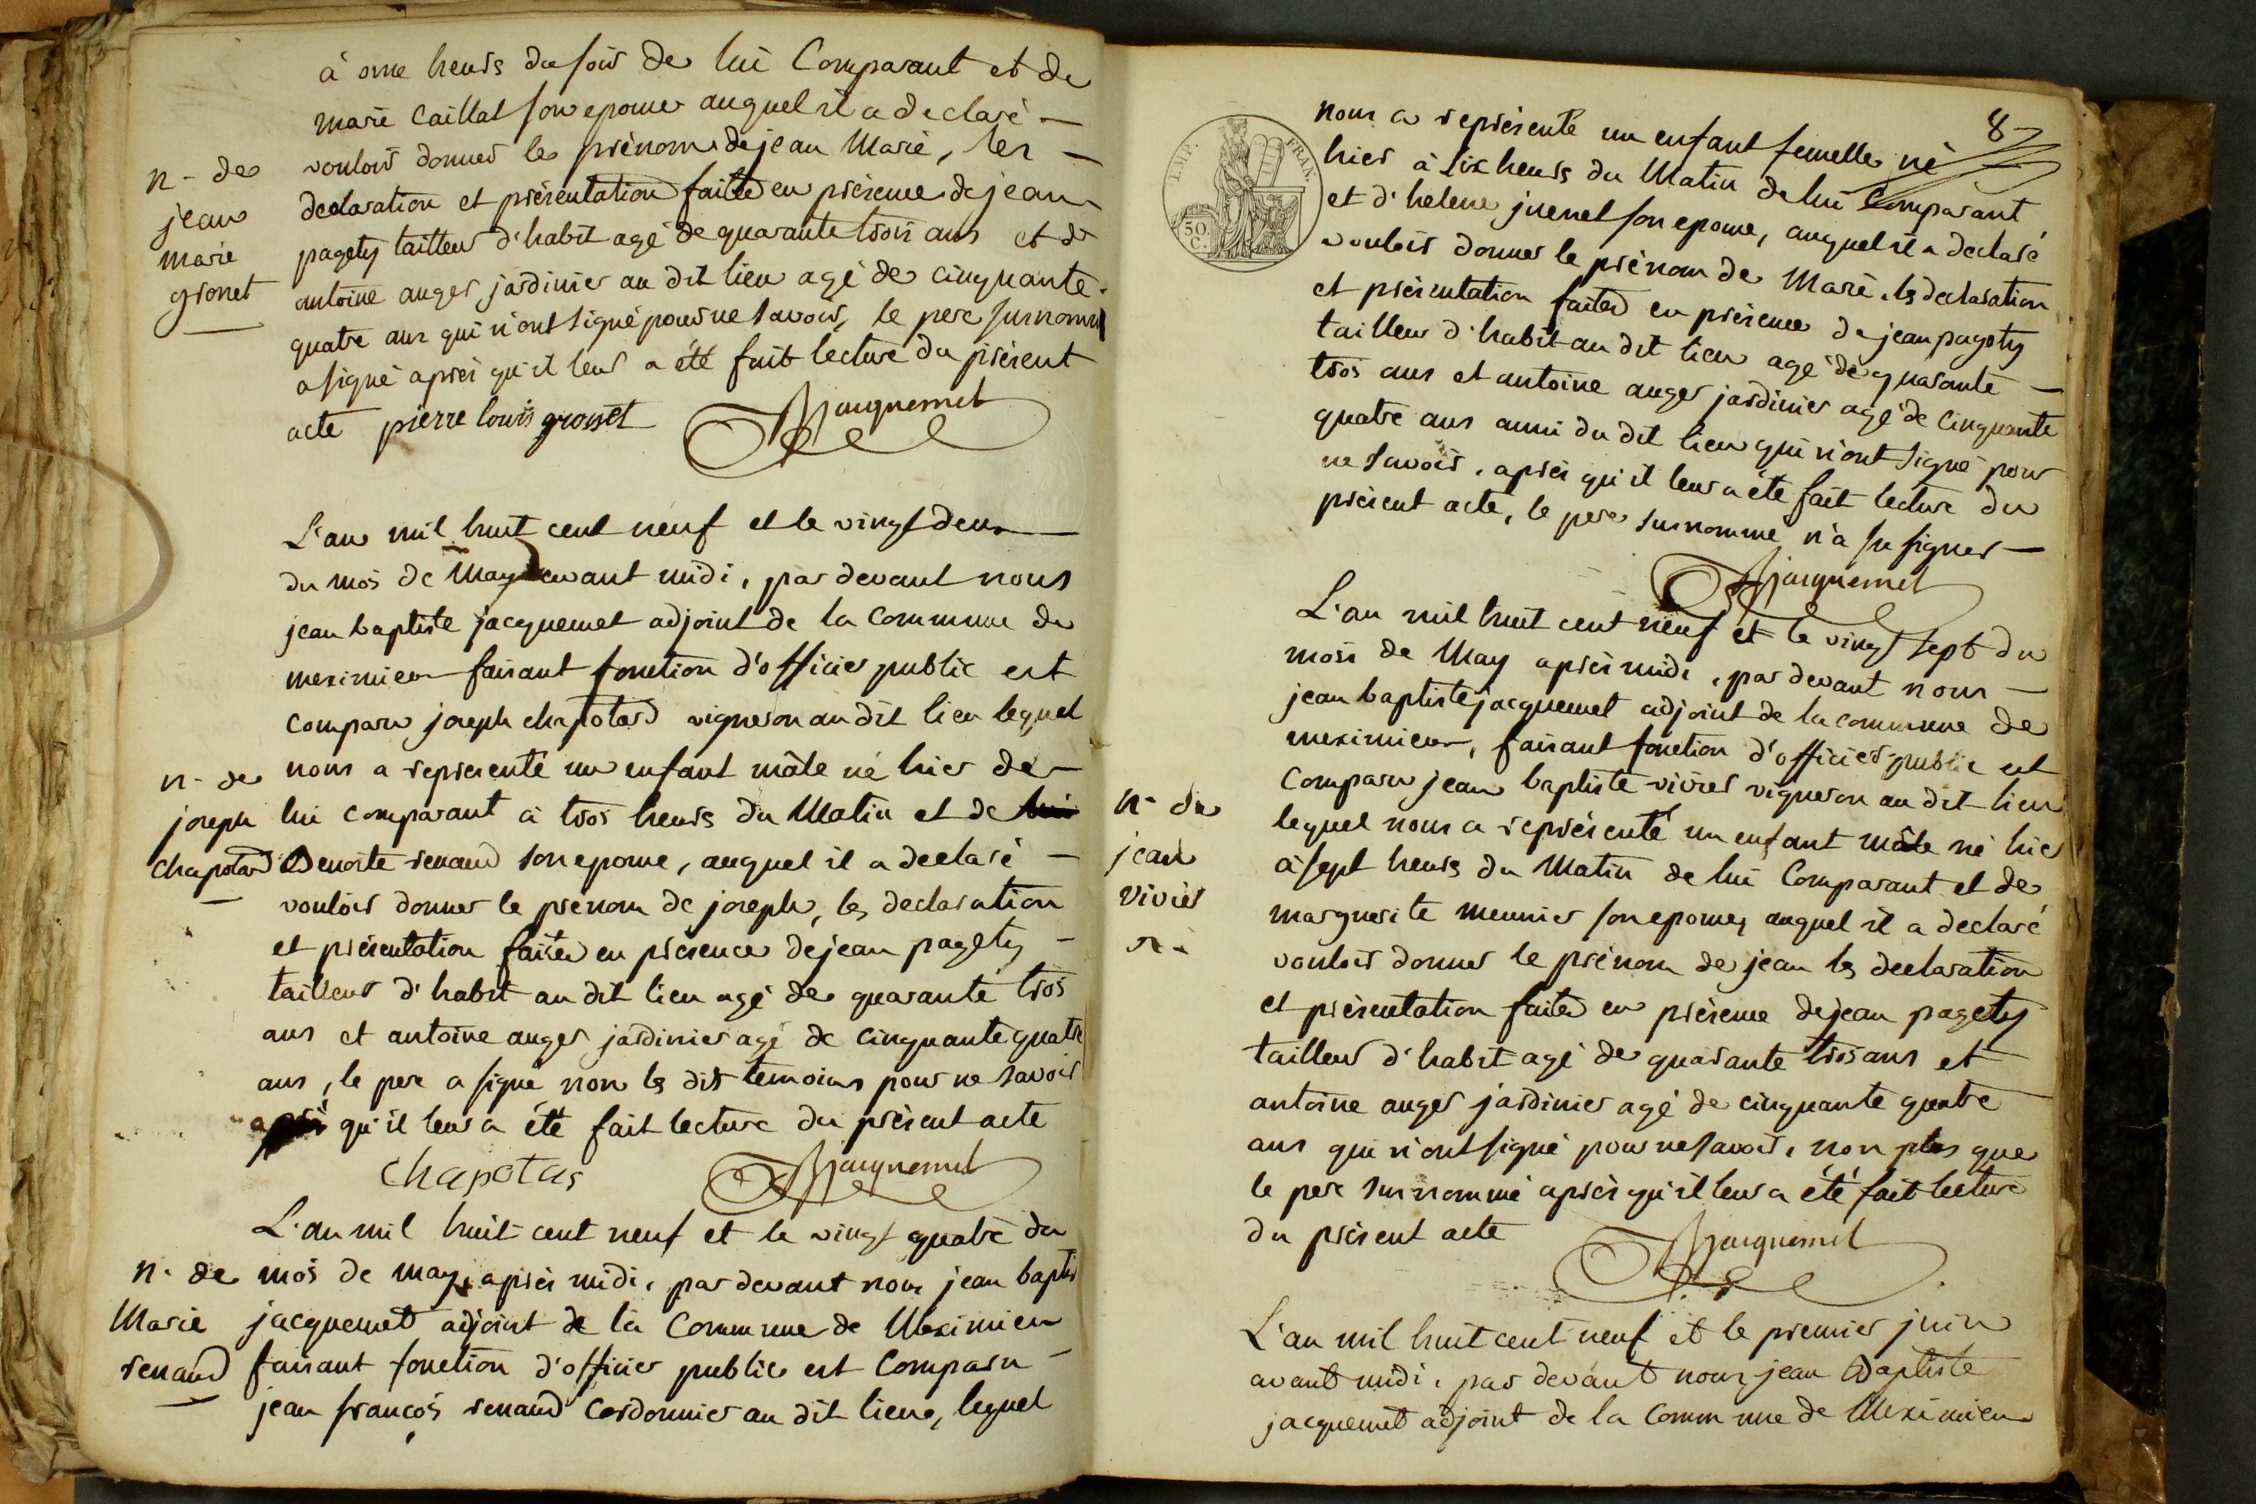 à onze heurs du soir de lui Comparant et de
marie Caillat son epouse auquel il a declaré —
vouloir donner les prénoms de jean Marie, les —
declaration et présentation faites en présence de jean
pagety tailleur d'habit agé de quarante trois ans et de
antoine auger jardinier au dit lieu agé de cinquante
quatre ans qui n'ont signé pour ne savoir, le pere surnommé
a signé après qu'il leur a été fait lecture du présent
acte pierre louis grosset Jacquemet
n. de
jean
marie
gronet
L'an mil huit cent neuf et le vingt deux
du mois de May avant midi, par devant nous
jean baptiste jacquemet adjoint de la Commune de
meximieux faisant fonction d'officier public est
comparu joseph chapotard vigneron au dit lieu lequel
nous a représenté un enfant mâle né hier de
lui comparant à trois heurs du Matin et de lui
Benoite renaud son epouse, auquel il a declaré —
vouloir donner le prénom de joseph, les declaration
et présentation faites en présence de jean pagety —
tailleur d'habit au dit lieu agé de quarante trois
ans et antoine auger jardinier agé de cinquante quatre
ans, le pere a signé non les dits temoins pour ne savoir
après qu'il leur a été fait lecture du présent acte
chapotas Jacquemet
n. de
joseph
chapotard
L'an mil huit cent neuf et le vingt quatre du
mois de may, après midi, par devant nous jean baptis
jacquemet adjoint de la Commune de Meximieu
faisant fonction d'officier public est Comparu —
jean françois renaud cordonnier au dit lieu, lequel
n. de
Marie
renaud
8
IMP. FRAN.
50.
C.
nous a représenté un enfant femelle né
hier à six heurs du Matin de lui Comparant
et d'helene juenet son epouse, auquel il a declaré
vouloir donner le prénom de Marie, les declaration
et présentation faites en présence de jean pagety
tailleur d'habit au dit lieu agé de quarante —
trois ans et antoine auger jardinier agé de cinquante
quatre ans aussi du dit lieu qui n'ont signé pour
ne savoir, après qu'il leur a été fait lecture du
présent acte, le pere surnommé n'a su signer —
Jacquemet
L'an mil huit cent neuf et le vingt sept du
mois de May après midi, par devant nous —
jean baptiste jacquemet adjoint de la commune de
meximieux, faisant fonction d'officier public est
Comparu jean baptiste vivier vigneron au dit lieu
lequel nous a représenté un enfant mâle né hier
à sept heurs du Matin de lui Comparant et de
marguerite meunier son epouse, auquel il a declaré
vouloir donner le prénom de jean les declaration
et présentation faites en présence de jean pagety
tailleur d'habit agé de quarante trois ans et
antoine auger jardinier agé de cinquante quatre
ans qui n'ont signé pour ne savoir, non plus que
le pere surnommé après qu'il leur a été fait lecture
du présent acte Jacquemet
n. de
jean
vivier
L'an mil huit cent neuf et le premier juin
avant midi, par devant nous jean Baptiste
jacquemet adjoint de la Commune de Meximieu